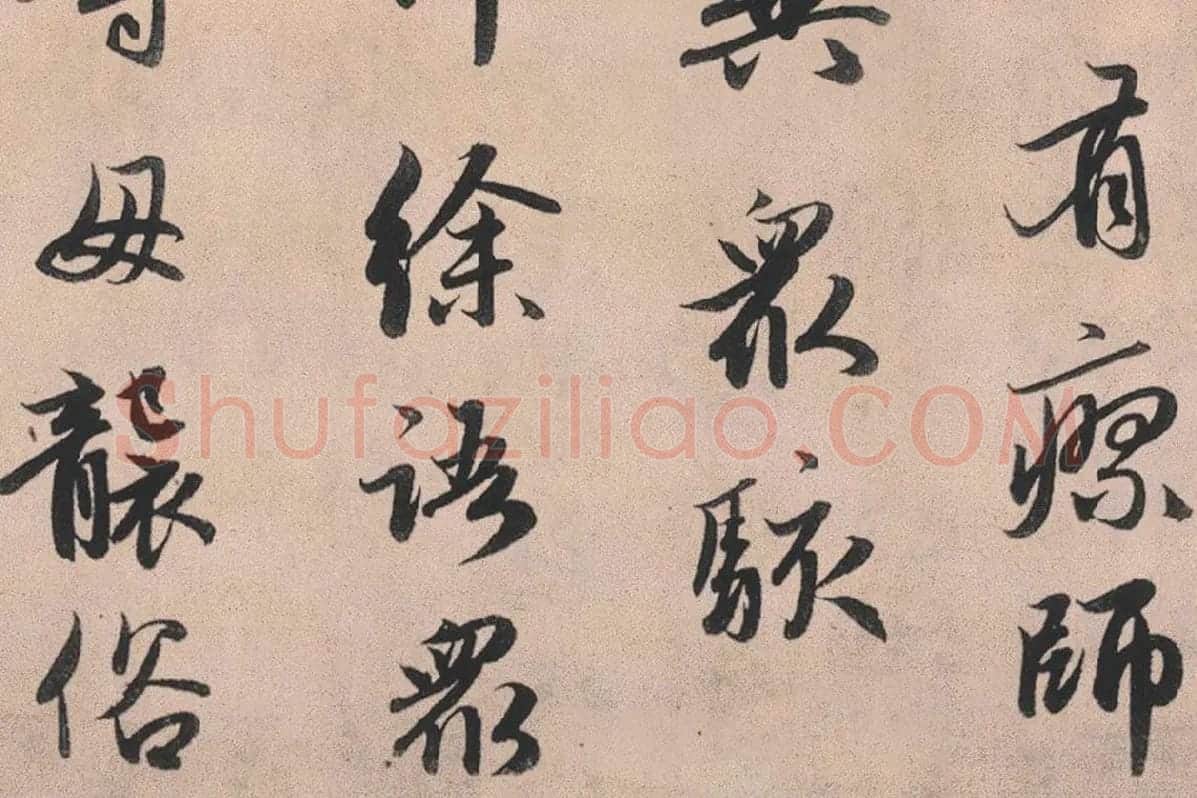 有瘳師
眾駭
徐語眾
毋襲俗
Shufaziliao.COM